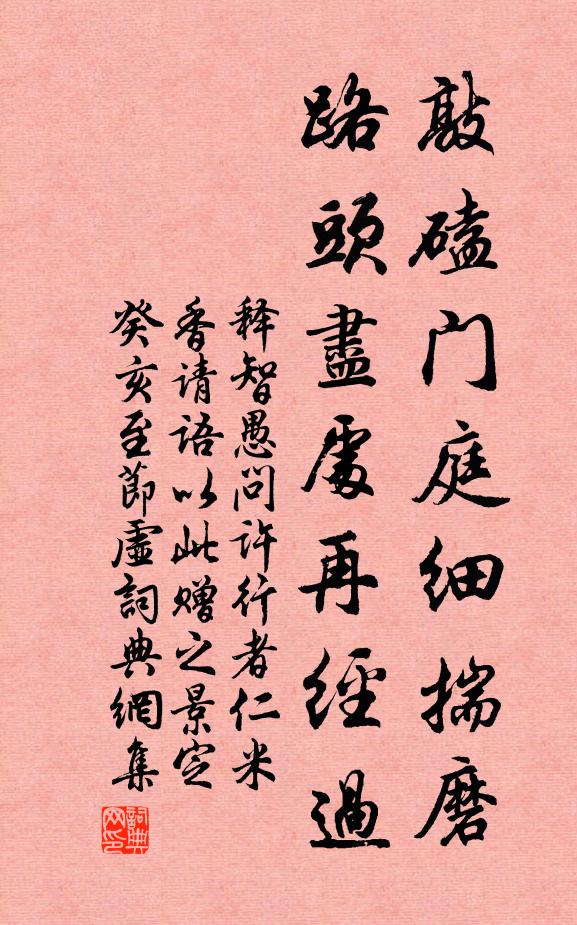 敲磕门庭细揣磨
路頭盡處再經過
释智愚问许行者仁米
香请语以此赠之景定
癸亥至節虛詞典網集
詞典网印